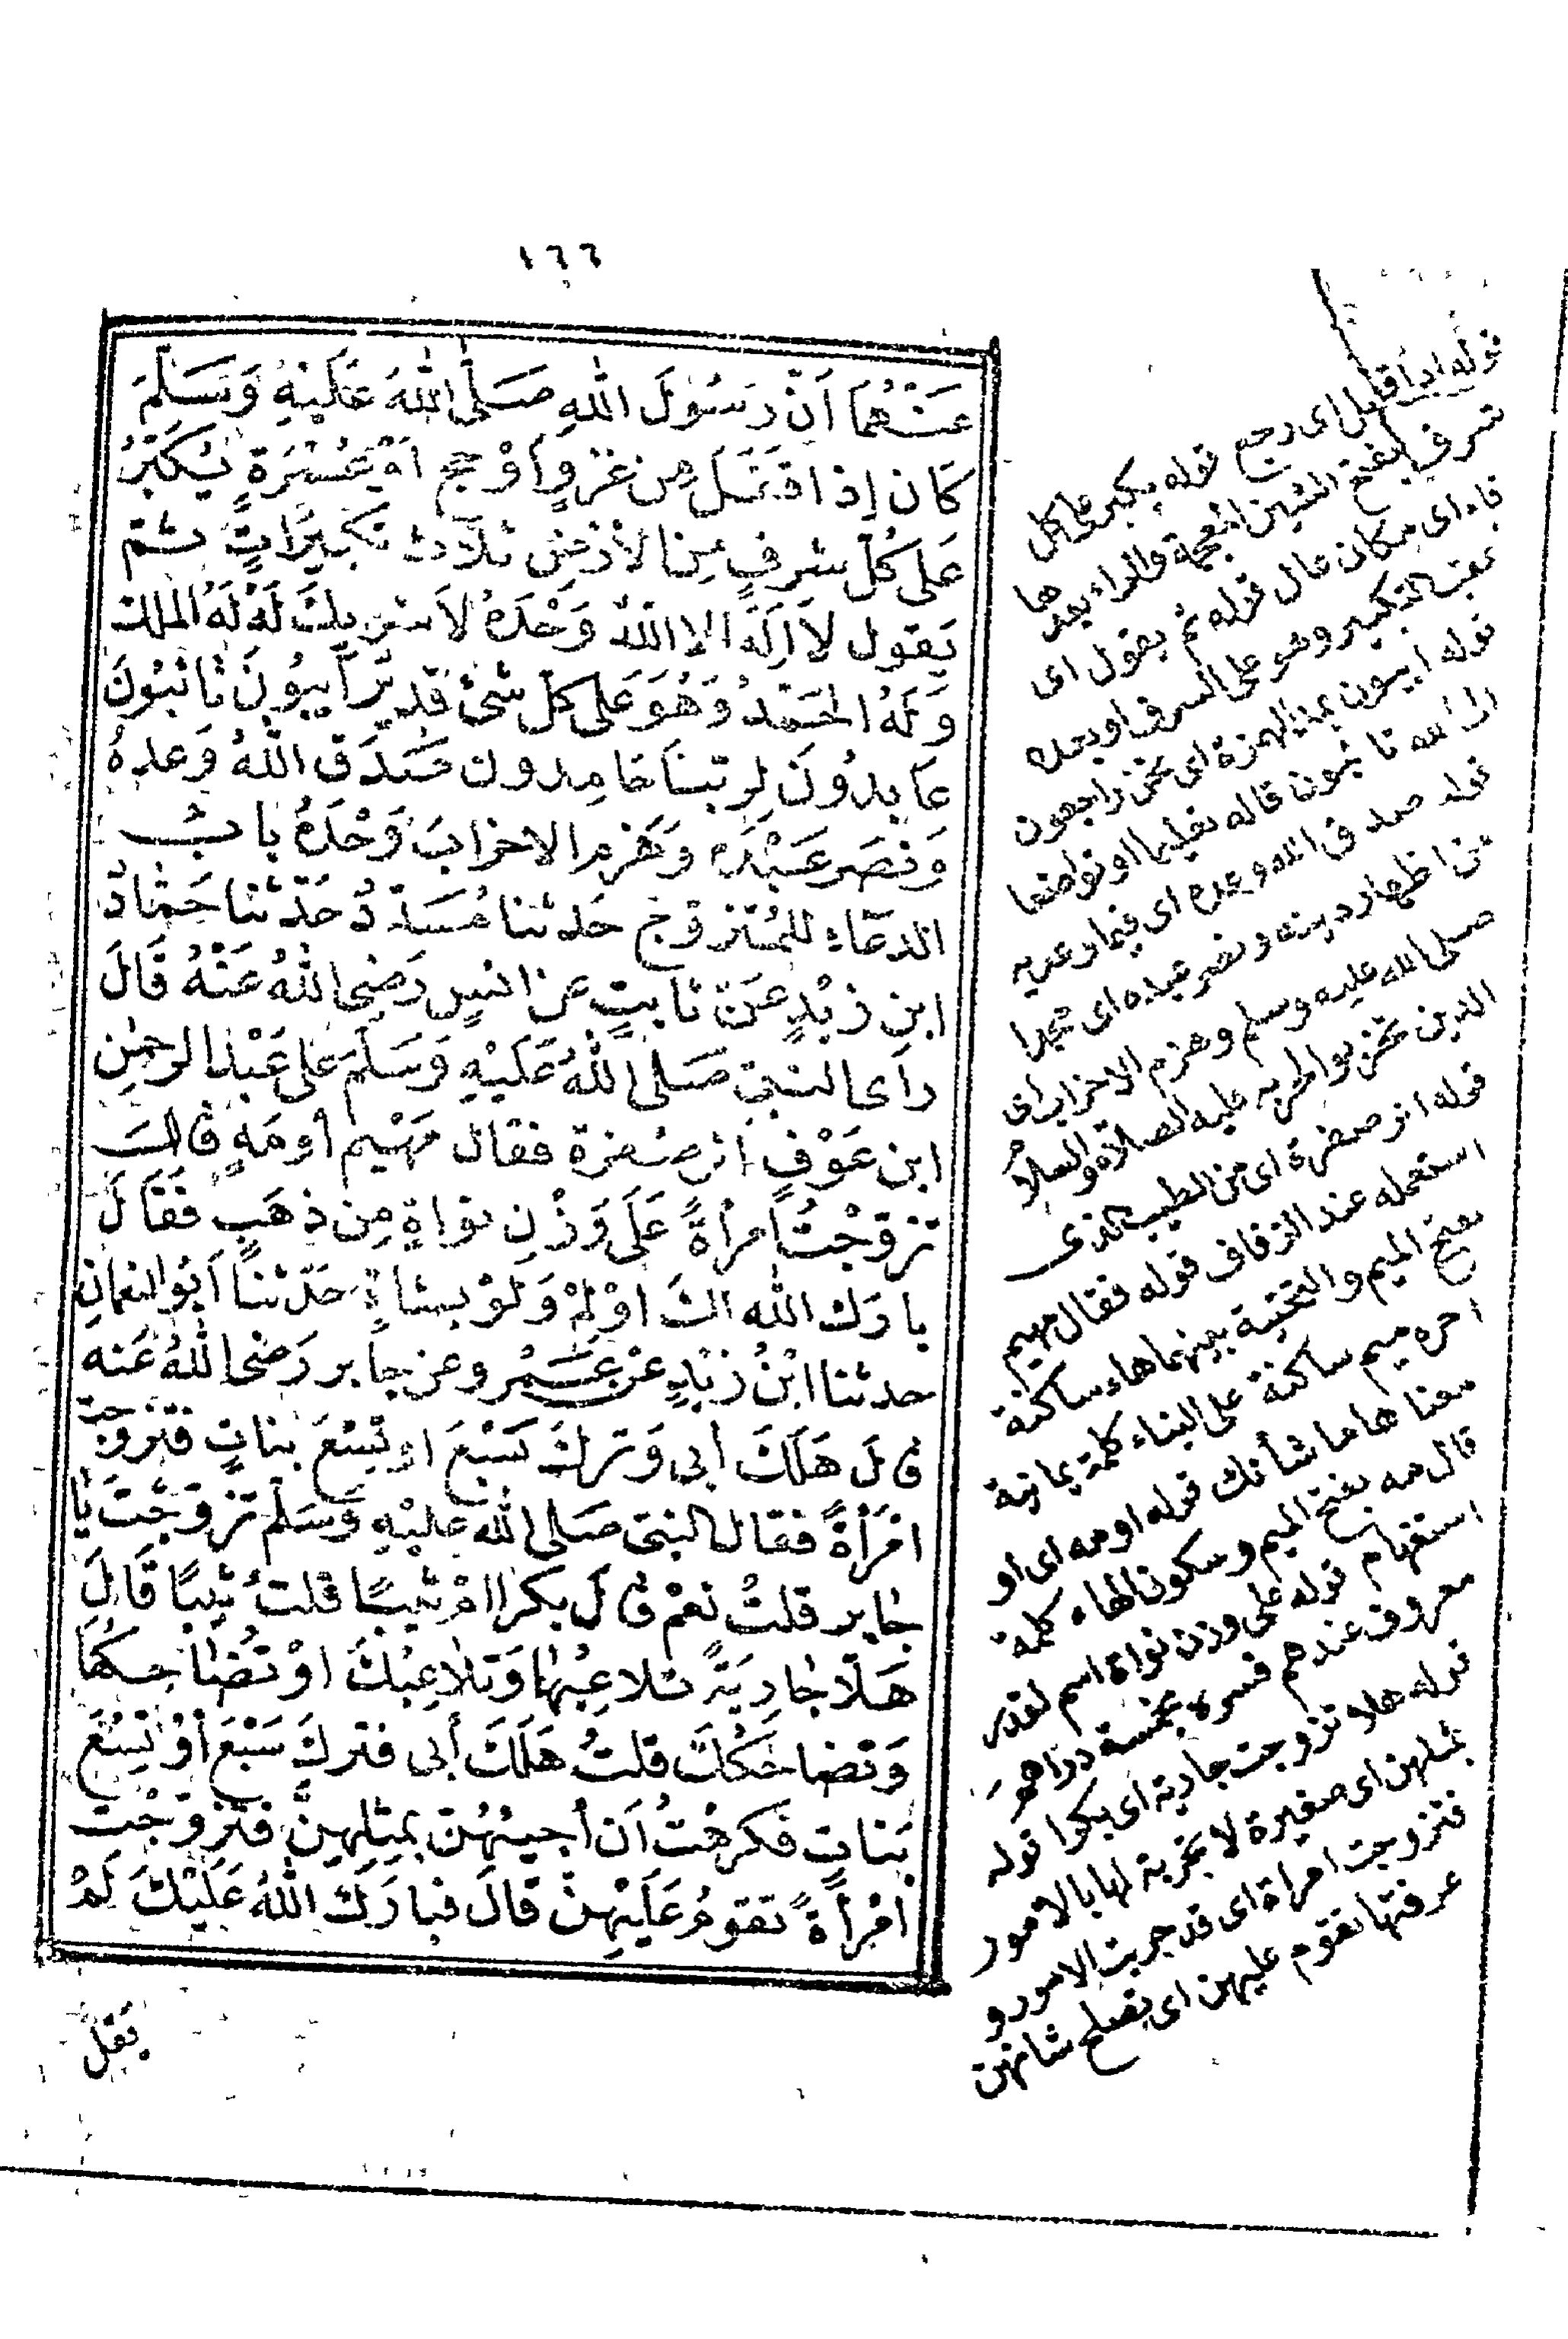 ١٦٦
عَنْهُمَا اَنَّ رَسُولَ اللهِ صَلَّى اللهُ عَلَيْهِ وَسَلَّمَ
كَانَ اِذَا قَفَلَ مِن غَزْوٍ اَوْ حج اَوْ عُمْرَةٍ يُكَبِّرُ
عَلى كُلِّ شَرفٍ مِنَ الأرْضِ ثلَاث تكبيرَاتٍ ثم
يَقول لاَاِلَهَ الا اللهُ وَحْدَهُ لاَشَريكَ لَهُ لَهُ الملك
وَلَهُ الحَمْدُ وَهُوَ عَلى كلّ شىْءٍ قدير آيبُونَ تائبُونَ
عَابدُونَ لِربّنَا حَامِدون صَدَق اللهُ وَعدهُ
وَنصَر عَبْدَه وَهَزم الاحزابَ وَحْدَهُ باب
الدعَاءِ للمُتزوّج حَدثنا مُسَدّدٌ حَدّثنا حَمّادُ
ابن زيْدٍ عَن ثابتٍ عن انسٍ رَضِى اللهُ عَنْهُ قَالَ
رأى النبىّ صَلى اللهُ عَلَيْهِ وَسَلّمَ عَلى عَبْد الرحمٰنِ
ابن عَوْفٍ اثر صُفرة فقال مَهْيم أو مَه قالَ
تزوّجْتُ امرأةً عَلَى وَزْنِ نواةٍ مِن ذهَبٍ فَقَالَ
بارَك الله لكَ اوْلِمْ وَلوْ بشاةٍ حَدّثنا اَبُو النعمانِ
حدثنا ابْنُ زيْدٍ عَنْ عَمْرو عن جابر رَضى اللهُ عَنه
قالَ هَلَكَ أبى وَتركَ سَبْعَ او تِسْعَ بناتٍ فتزوّجت
امْرَأةً فقال النبى صَلى الله عليْهِ وَسَلّم تزوجْتَ يَا
جَابر قلتُ نعَمْ قالَ بكرا امْ ثيّبًا قلتُ ثيّبًا قَالَ
هَلّا جَاريَةً تلاعِبُها وَتلاعِبُكَ اوْ تُضاحكُهَا
وَتضاحَكُكَ قلتُ هَلَكَ أبى فتركَ سَبْعَ أوْ تِسْعَ
بَناتٍ فَكرهْتُ اَن أجيئهُنّ بمِثلِهِنّ فتزوّجْت
امْرأةً تقومُ عَلَيْهِنّ قالَ فبارَكَ اللهُ عَلَيْكَ لَمْ
يَقل
قوله اذا قفل اى رجع قوله يكبر على كل
شرف بفتح الشين المعجمة والراء بعدها
فاء اى مكان عال قوله ثم يقول اى
عقب التكبير وهو على الشرف او بعده
قوله آيبون بمد الهمزة اى نحن راجعون
الى الله تائبون قاله تعليما او تواضعا
قوله صدق الله وعده اى فيما وعد به
من اظهار دينه ونصر عبده اى محمدا
صلى الله عليه وسلم وهزم الاحزاب اى
الذين تحزبوا لحربه عليه الصلاة والسلام
قوله اثر صفرة اى من الطيب الذى
استعمله عند الزفاف قوله فقال مهيم
بفتح الميم والتحتية بينهما هاء ساكنة
اخره ميم ساكنة على البناء كلمة يمانية
معناها ما شأنك قوله او مه اى او
قال مه بفتح الميم وسكون الهاء كلمة
استفهام قوله على وزن نواة اسم لقدر
معروف عندهم فسروه بخمسة دراهم
قوله هلا تزوجت جارية اى بكرا قوله
بمثلهن اى صغيرة لا تجربة لها بالامور
فتزوجت امراة اى قد جربت الامور و
عرفتها تقوم عليهن اى تصلح شانهن